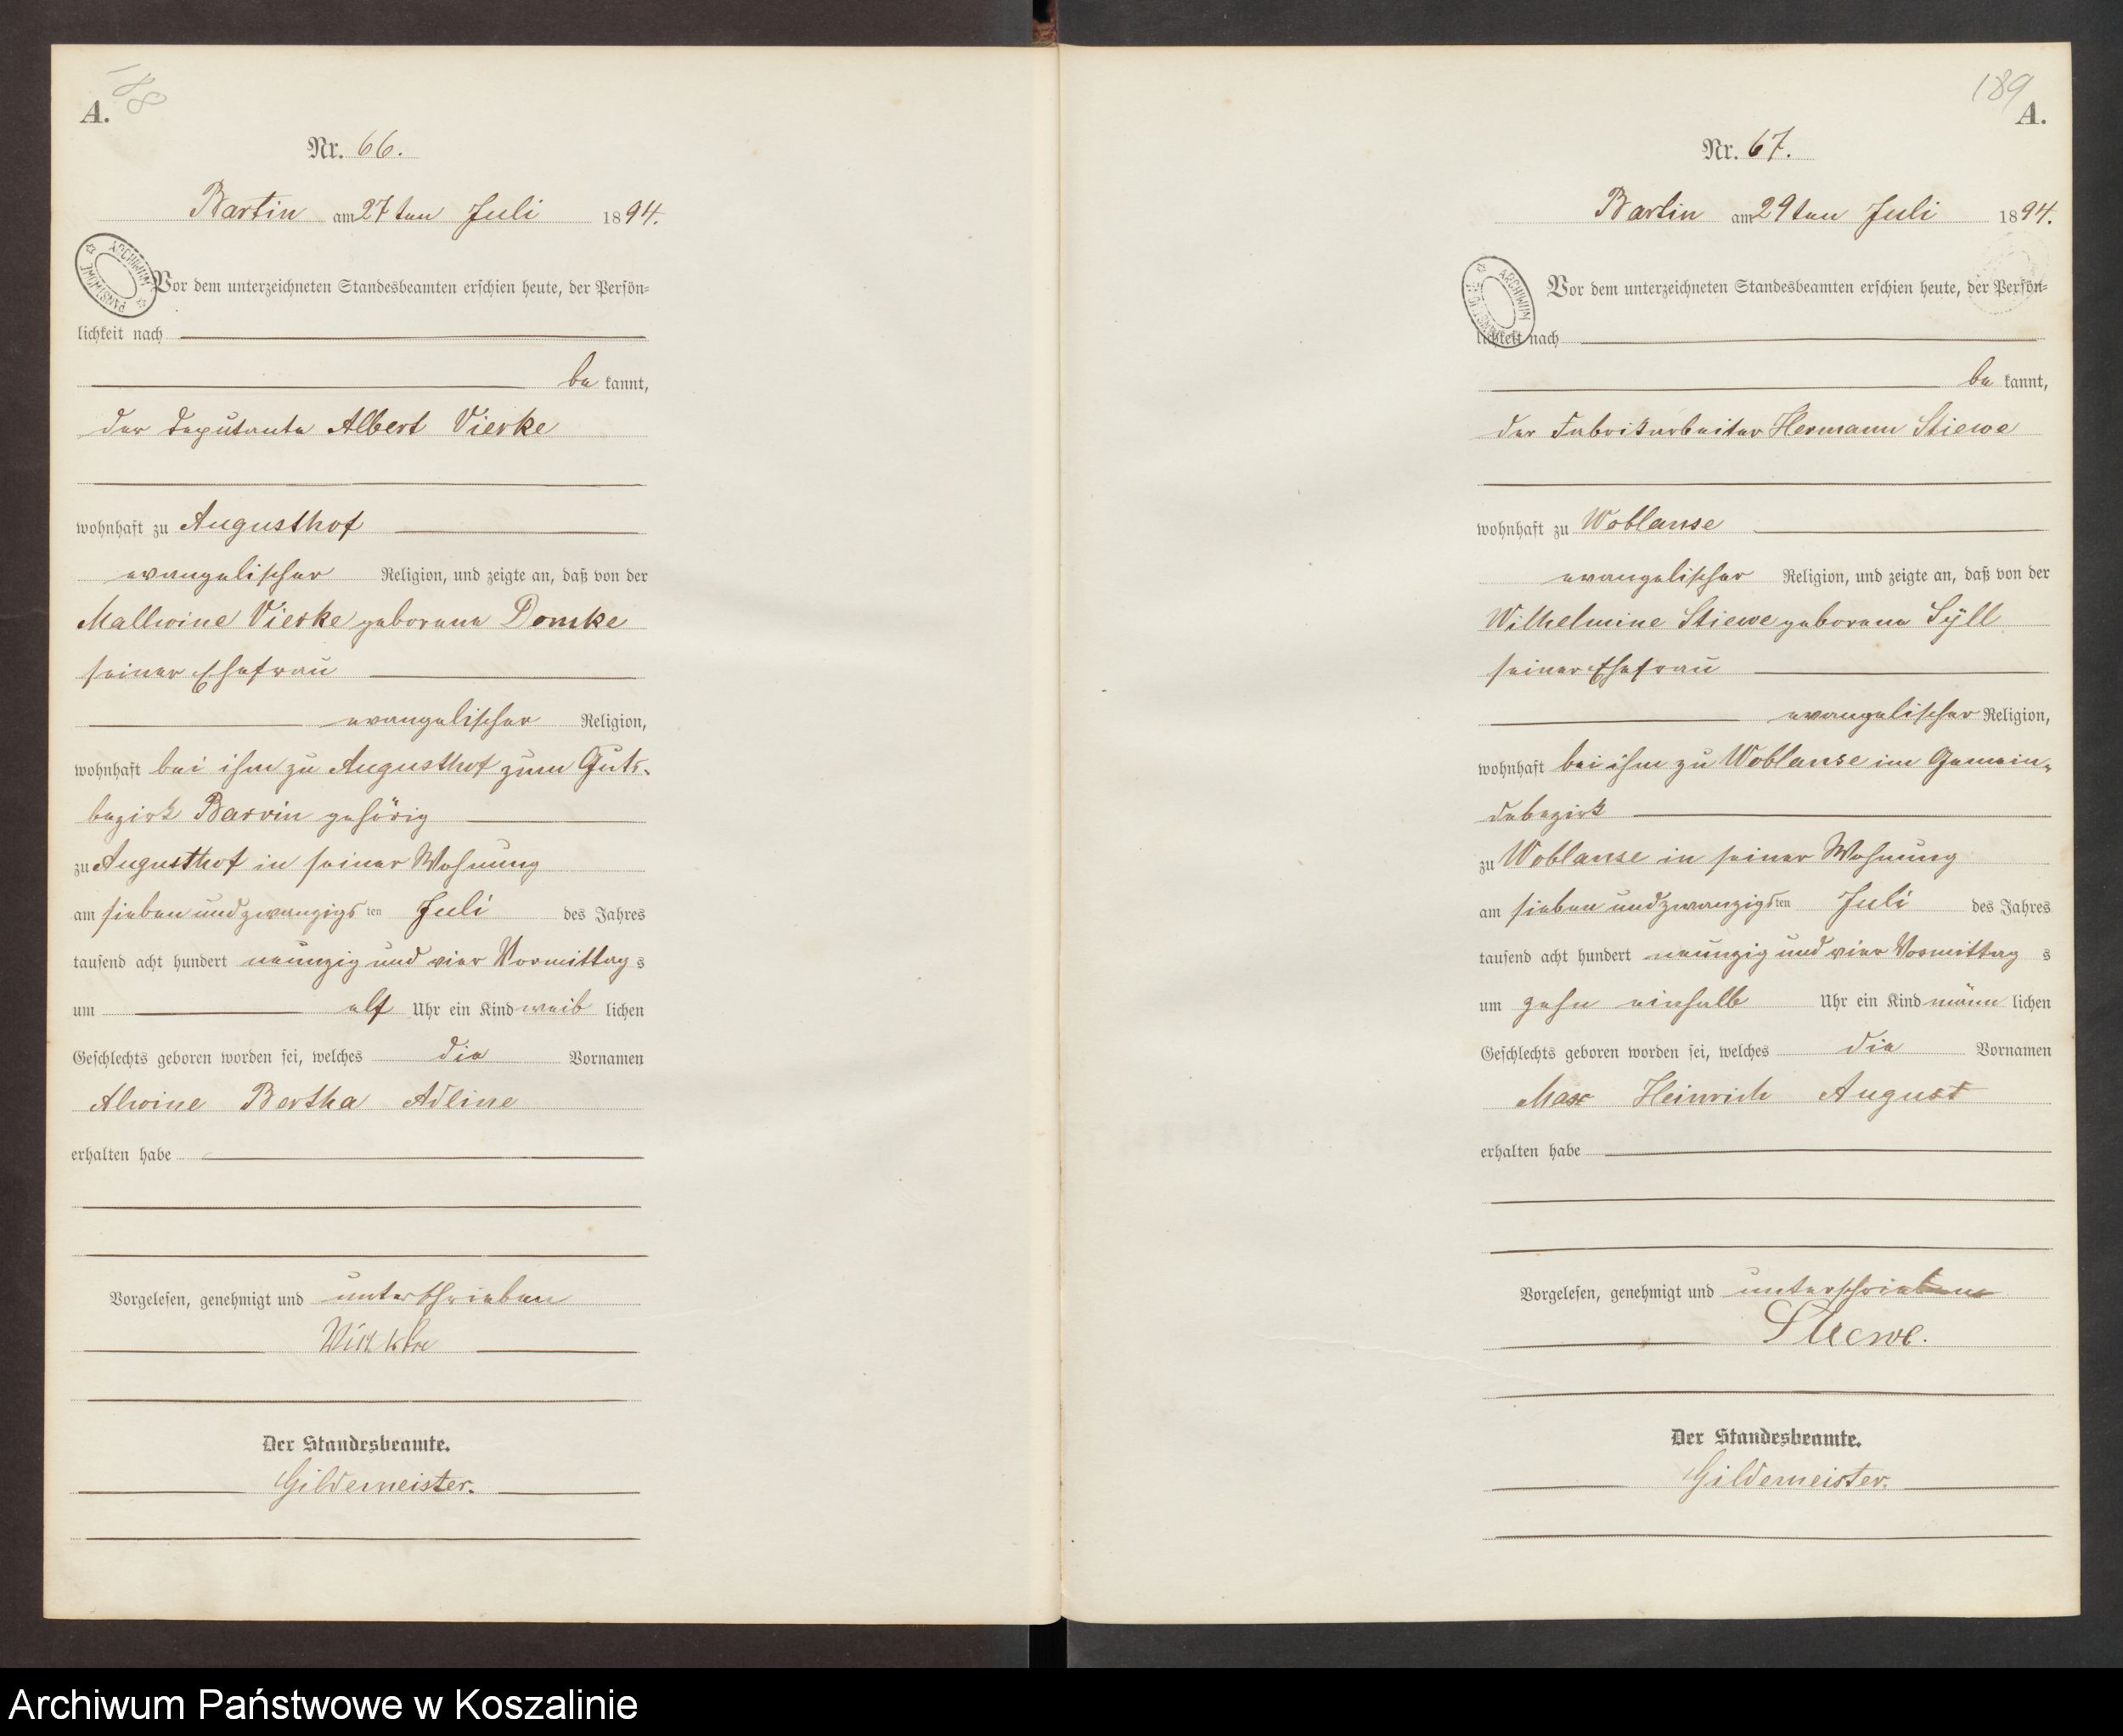 188
A.
Nr. 66.
Bartin am 27ten Juli 1894.
ARCHIWUM PAŃSTWOWE
Vor dem unterzeichneten Standesbeamten erschien heute, der Persön=
lichkeit nach
be kannt,
der Deputante Albert Vierke
wohnhaft zu Augusthof
evangelischer Religion, und zeigte an, daß von der
Mallwine Vierke geborene Domke
seiner Ehefrau
evangelischer Religion,
wohnhaft bei ihm zu Augusthof zum Guts-
bezirk Barvin gehörig
zu Augusthof in seiner Wohnung
am sieben und zwanzigs ten Juli des Jahres
tausend acht hundert neunzig und vier Vormittag s
um elf Uhr ein Kind weib lichen
Geschlechts geboren worden sei, welches die Vornamen
Alwine Bertha Adline
erhalten habe
Vorgelesen, genehmigt und unterschrieben
Der Standesbeamte.
Gildemeister.
189
A.
Nr. 67.
Bartin am 29ten Juli 1894.
ARCHIWUM PAŃSTWOWE
Vor dem unterzeichneten Standesbeamten erschien heute, der Persön=
lichkeit nach
be kannt,
der Fabrikarbeiter Hermann Stiewe
wohnhaft zu Woblanse
evangelischer Religion, und zeigte an, daß von der
Wilhelmine Stiewe geborene Syll
seiner Ehefrau
evangelischer Religion,
wohnhaft bei ihm zu Woblanse im Gemein-
debezirk
zu Woblanse in seiner Wohnung
am sieben und zwanzigs ten Juli des Jahres
tausend acht hundert neunzig und vier Vormittag s
um zehn einhalb Uhr ein Kind männ lichen
Geschlechts geboren worden sei, welches die Vornamen
Max Heinrich August
erhalten habe
Vorgelesen, genehmigt und unterschrieben
Stiewe.
Der Standesbeamte.
Gildemeister.
Archiwum Państwowe w Koszalinie